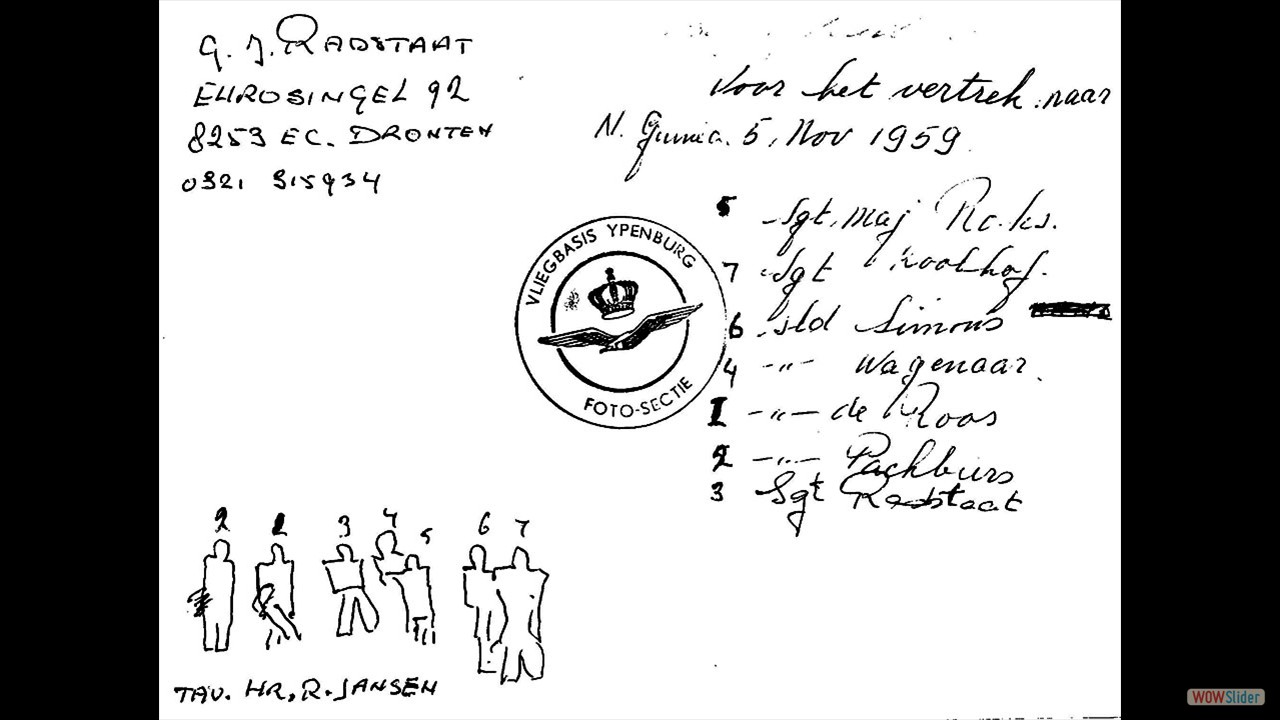 G. J. RADSTAAT
EUROSINGEL 92
8253 EC. DRONTEN
0321 315934
Voor het vertrek naar
N. Guinea. 5, Nov 1959
5 Sgt. Maj
7 Sgt Koolhof.
6 sld Simons
4 -"- Wagenaar.
1 -"- de Roos
2 -"-
3 Sgt Radstaat
VLIEGBASIS YPENBURG
FOTO-SECTIE
2 1 3 4 5 6 7
TAV. HR. R. JANSEN
WOWSlider